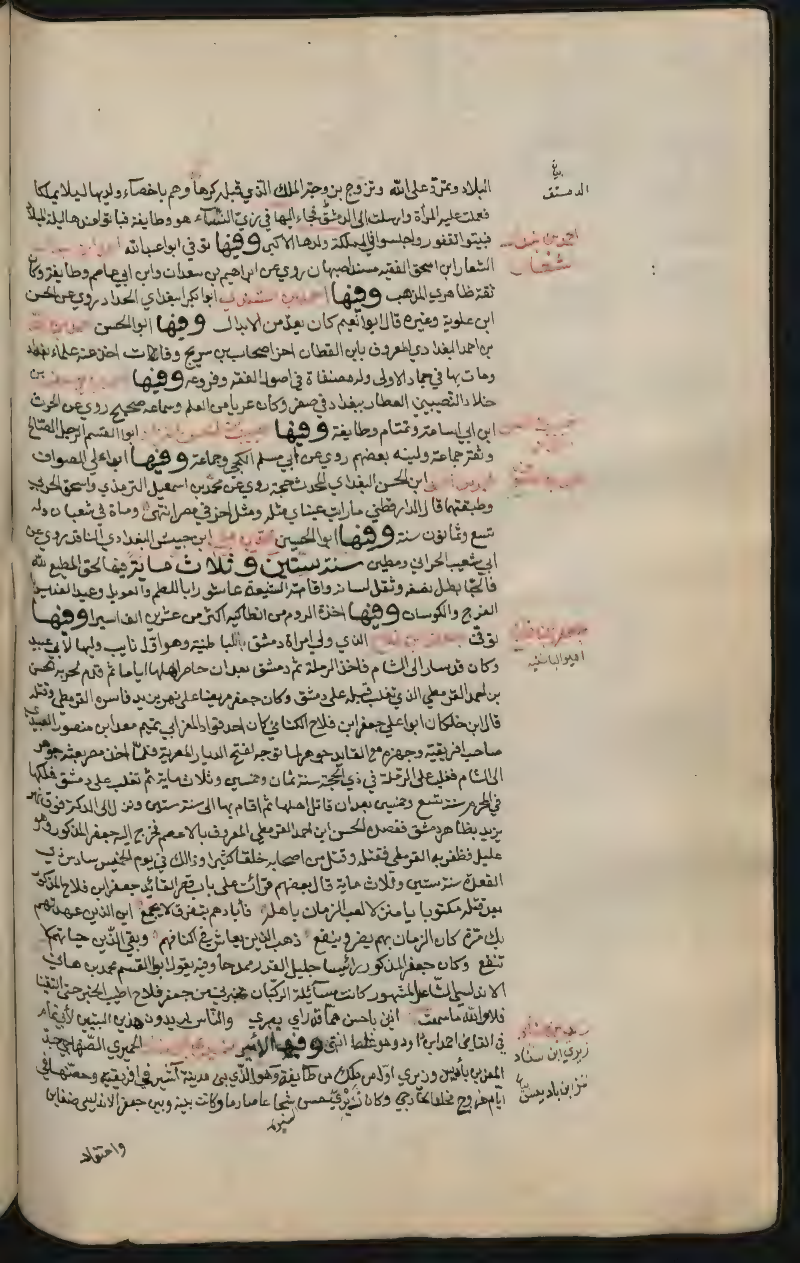 البلاد وتمرد على الله وتزوج بزوجة الملك الذي قبله كرها وهم باخصاء ولديها ليلا يملكا
فعلت عليه المرأة وارسلت الى الدمستق فجاء اليها في زي النساء هو وطايفة فباتوا عندها ليلة الميلاد
فبيتوا النقفور واجلسوا في المملكة ولدها الاكبر وفيها توفي ابو عبدالله
الشعار ابن اسحق الفقيه مسند اصبهان روى عن ابراهيم بن سعدان وابن ابي عاصم وطايفة وكان
ثقة ظاهري المذهب وفيها ابو بكر البغدادي الحداد روى عن الحسن
ابن علوية وغيره قال ابو نعيم كان يعد من الابدال وفيها ابو الحسن
بن احمد البغدادي المعروف بابن القطان اخر اصحاب بن سريج وفاة اخذ عنه علماء بغداد
ومات بها في جماد الاولى وله مصنفاة في اصول الفقه وفروعه وفيها بن
خلاد النصيبي العطار ببغداد في صفر وكان عريا من العلم وسماعه صحيح روى عن الحرث
ابن ابي اسامة وتمتام وطايفة وفيها ابو القسم الرجل الصالح
وثقه جماعة ولينه بعضهم روى عن ابي مسلم الكجي وجماعة وفيها ابو علي الصواف
ابن الحسن البغدادي المحدث حجة روى عن محمد بن اسمعيل الترمذي واسحق الحربي
وطبقتهما قال الدارقطني ما رات عيناي مثله ومثل اخر في مصر انتهى ومات في شعبان وله
تسع وثمانون سنة وفيها ابو الحسين ابن حبيش البغدادي الناقد روى عن
ابي شعيب الحراني ومطين سنة ستين وثلاث ماية فيها لحق المطيع لله
فالج بطل نصفه وثقل لسانه واقامت الشيعة عاشورا باللطم والعويل وعيد الغدير
الفرح والكوسان وفيها اخذة الروم من انطاكيه اكثر من عشرين الف اسير وفيها
توفي جعفر بن فلاح الذي ولي امراة دمشق للباطنية وهو اول نايب وليها لابي عبيد
وكان قد سار الى الشام فاخذ الرملة ثم دمشق بعد ان حاصر اهلها اياما ثم قدم لحربه الحسن
بن احمد القرمطي الذي تغلب قبله على دمشق وكان جعفر مريضا على نهر يزيد فاسره القرمطي وقتله
قال ابن خلكان ابو علي جعفر ابن فلاح الكتامي كان احد قواد المعز ابي تميم معد ابن منصور العبيدي
صاحب افريقية وجهزه مع القايد جوهر لما توجه لفتح الديار المصرية فلما اخذ مصر بعثه جوهر
الى الشام فغلب على الرملة في ذي الحجة سنة ثمان وخمسين وثلاث ماية ثم تغلب على دمشق فملكها
في المحرم سنة تسع وخمسين بعد ان قاتل اهلها ثم اقام بها الى سنة ستين ونزل الى الدكة فوق نهر
يزيد بظاهر دمشق فقصده الحسن ابن احمد القرمطي المعروف بالاعصم فخرج اليه جعفر المذكور وهو
عليل فظفر به القرمطي فقتله وقتل من اصحابه خلقا كثيرا وذالك في يوم الخميس سادس ذي
القعدة سنة ستين وثلاث ماية قال بعضهم قرات على باب قصر القايد جعفر ابن فلاح المذكور
بعد قتله مكتوبا يا منزلا لعب الزمان باهله فابادهم بتفرق لا يجمع اين الذين عهدتهم
بك مرة كان الزمان بهم يضر وينفع ذهب الذين يعاش في اكنافهم وبقي الذين حياتهم لا
تنفع وكان جعفر المذكور رئيسا جليل القدر ممدحا وفيه يقول ابو القسم محمد بن هاني
الاندلسي الشاعر المشهور كانت مسائلة الركبان تخبرني عن جعفر فلاح اطيب الخبر حتى التقينا
فلا والله ما سمعت اذني باحسن مما قد راى بصري والناس يريدون هذين البيتين لابي تمام
في القاضي احمد ابن ابي داود وهو غلط انتهى وفيها الامير الحميري الصنهاجي جد
المعز بن باديس وزيري اول من ملك من طايفته وهو الذي بنى مدينة آشير في افريقية وحصنها في
ايام خروج مخلد الخارجي وكان زيري حسن شجاعا صارما وكانت بينه وبين جعفر الاندلسي ضغاين
السيرة
واحقاد
الدمستق
احمد بن بندار
شعار
جعفر بن فلاح
زيري ابن مناد
معز ابن باديس